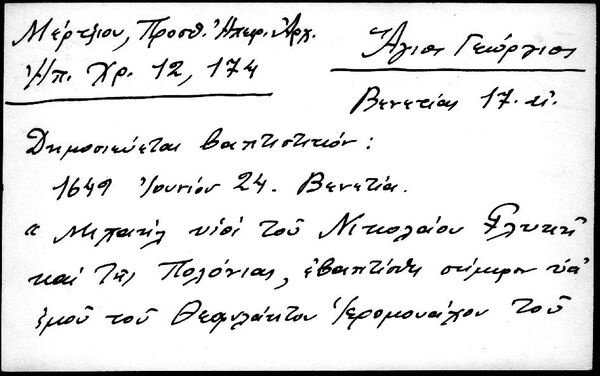 Μέρτζιου, Προσθ. Ηπειρ. Αρχ.
Ἠπ. Χρ. 12, 174
Ἅγιος Γεώργιος
Βενετίας 17. αἰ.
Δημοσιεύεται βαπτιστικόν:
1649 Ἰουνίου 24. Βενετία.
« Μιχαήλ υἱός τοῦ Νικολάου Γλυκῆ
καί τῆς Πολόνιας, ἐβαπτίσθη σήμερον ὑπ'
ἐμοῦ τοῦ Θεοφυλάκτου Ἱερομονάχου τοῦ